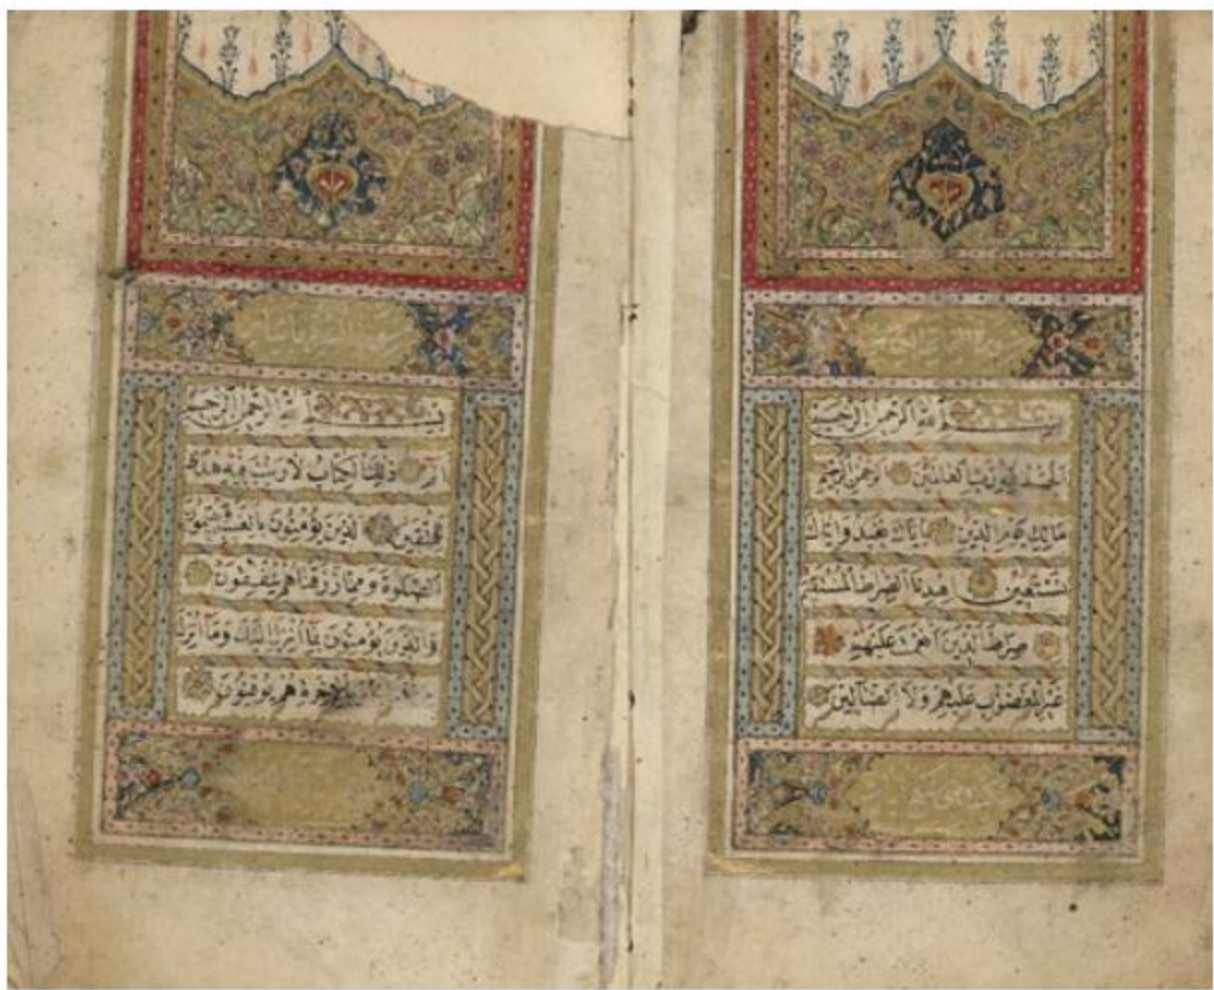 بسم الله الرحمن الرحيم
الحمد لله رب العالمين الرحمن الرحيم
مالك يوم الدين اياك نعبد واياك
نستعين اهدنا الصراط المستقيم
صراط الذين انعمت عليهم
غير المغضوب عليهم ولا الضآلين
بسم الله الرحمن الرحيم
الم ذلك الكتاب لا ريب فيه هدى
للمتقين الذين يؤمنون بالغيب ويقيمون
الصلوة ومما رزقناهم ينفقون
والذين يؤمنون بما انزل اليك وما انزل
وبالاخرة هم يوقنون